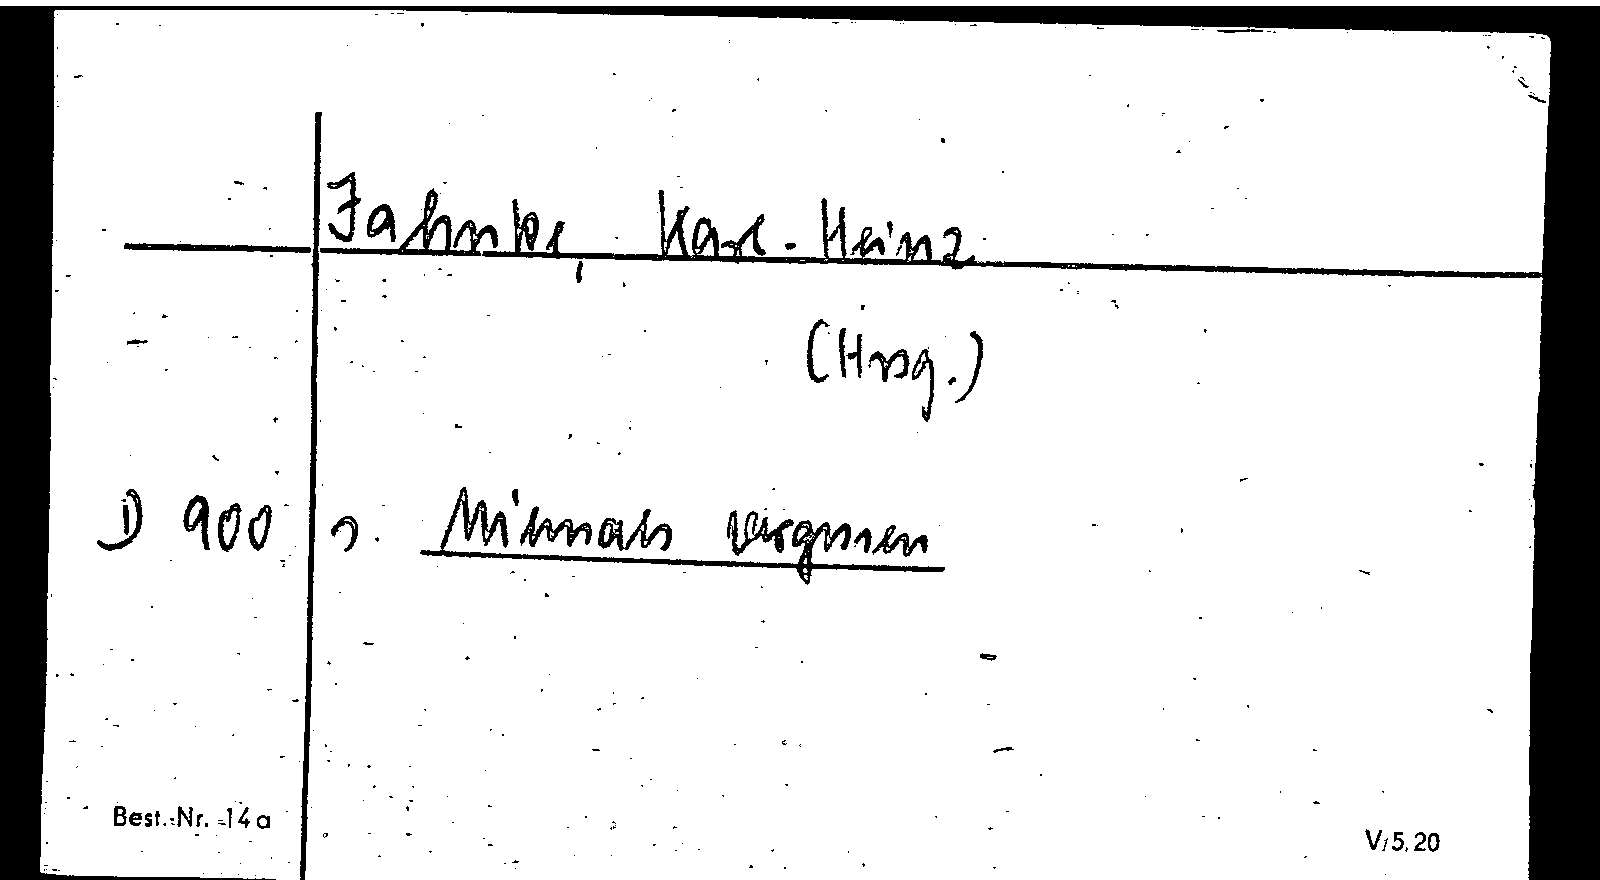 Jahnke, Karl-Heinz
(Hrsg.)
D 900 s. Niemals vergessen
Best.-Nr. 14a
V/5,20